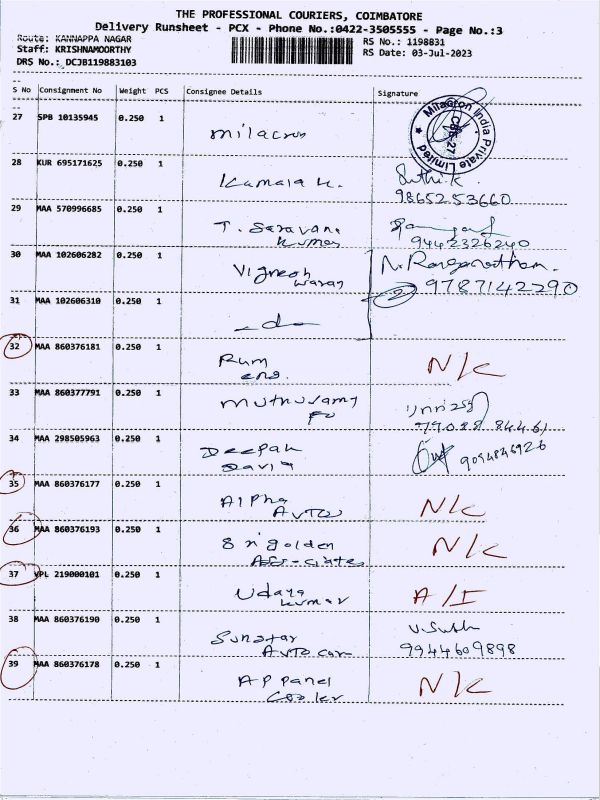 THE PROFESSIONAL COURIERS, COIMBATORE
Delivery Runsheet - PCX - Phone No.:0422-3505555 - Page No.:3
Route: KANNAPPA NAGAR
Staff: KRISHNAMOORTHY
DRS No.: DCJB119883103
RS No.: 1198831
RS Date: 03-Jul-2023
S No Consignment No Weight PCS Consignee Details Signature
27 SPB 10135945 0.250 1 Milacron
Milacron India Private Limited
CBE-27
28 KUR 695171625 0.250 1 Kamala K.
9865253660
29 MAA 570996685 0.250 1 T. Saravana
Kumar
9442326240
30 MAA 102606282 0.250 1 Vignesh
waran
N. Ranganathan.
2 9787142290
31 MAA 102606310 0.250 1 -do-
32 MAA 860376181 0.250 1 Ram
eng. N/C
33 MAA 860377791 0.250 1 Muthuramy
79088 84461
34 MAA 298505963 0.250 1 Deepak
David
9094846926
35 MAA 860376177 0.250 1 Alpha
Auto N/C
36 MAA 860376193 0.250 1 Srigolden
Asso-ciates N/C
37 VPL 219000101 0.250 1 Udaya
kumar A/I
38 MAA 860376190 0.250 1
Auto care
9944609898
39 MAA 860376178 0.250 1 AP panel
Cooler N/C